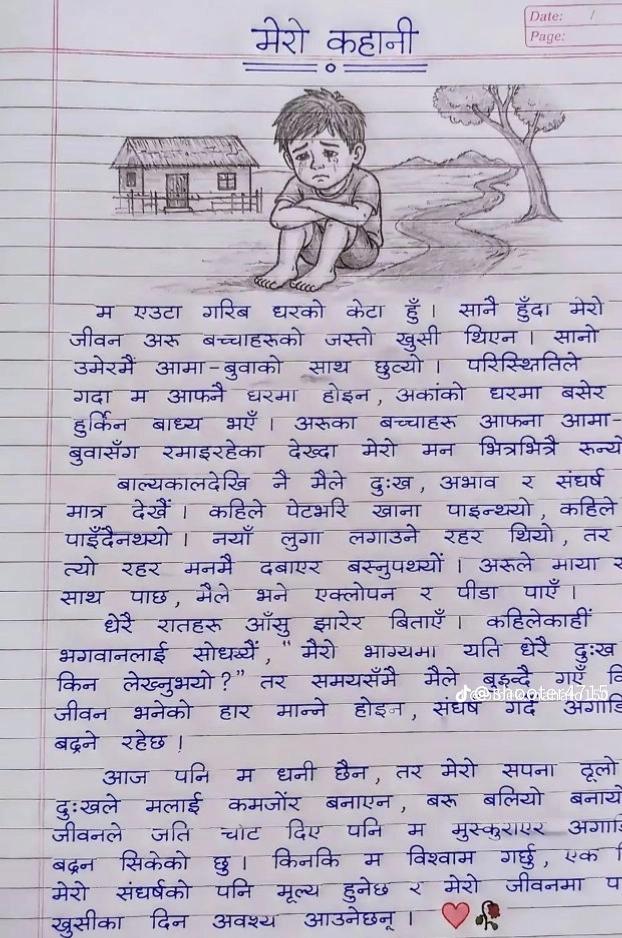 Date: /
Page:
मेरो कहानी
म एउटा गरिब घरको केटा हुँ । सानै हुँदा मेरो
जीवन अरू बच्चाहरूको जस्तो खुसी थिएन । सानो
उमेरमै आमा-बुवाको साथ छुट्यो । परिस्थितिले
गदा म आफ्नै घरमा होइन, अकांको घरमा बसेर
हुर्किन बाध्य भएँ । अरूका बच्चाहरू आफ्ना आमा-
बुवासँग रमाइरहेका देख्दा मेरो मन भित्रभित्रै रून्थ्यो
बाल्यकालदेखि नै मैले दुःख, अभाव र संघर्ष
मात्र देखेँ । कहिले पेटभरि खाना पाइन्थ्यो, कहिले
पाइँदैनथ्यो । नयाँ लुगा लगाउने रहर थियो, तर
त्यो रहर मनमै दबाएर बस्नुपथ्यों । अरूले माया र
साथ पाछ, मैले भने एक्लोपन र पीडा पाएँ ।
धेरै रातहरू आँसु झारेर बिताएँ । कहिलेकाहीं
भगवानलाई "मेरो भाग्यमा यति धेरै दुःख
किन लेख्नुभयो ?" तर समयसँगै मैले गएँ
@shooter4715
जीवन भनेको हार मान्ने होइन, संघर्ष गर्दै
बढ्ने रहेछ ।
आज पनि म धनी छैन, तर मेरो सपना ठूलो
दुःखले मलाई कमजोर बनाएन, बरू बलियो
जीवनले जति चोट दिए पनि म मुस्कुराएर
बढ्न सिकेको छु । किनकि म विश्वाम गर्छु, एक
मेरो संघर्षको पनि मूल्य हुनेछ र मेरो जीवनमा
खुसीका दिन अवश्य आउनेछन् ।